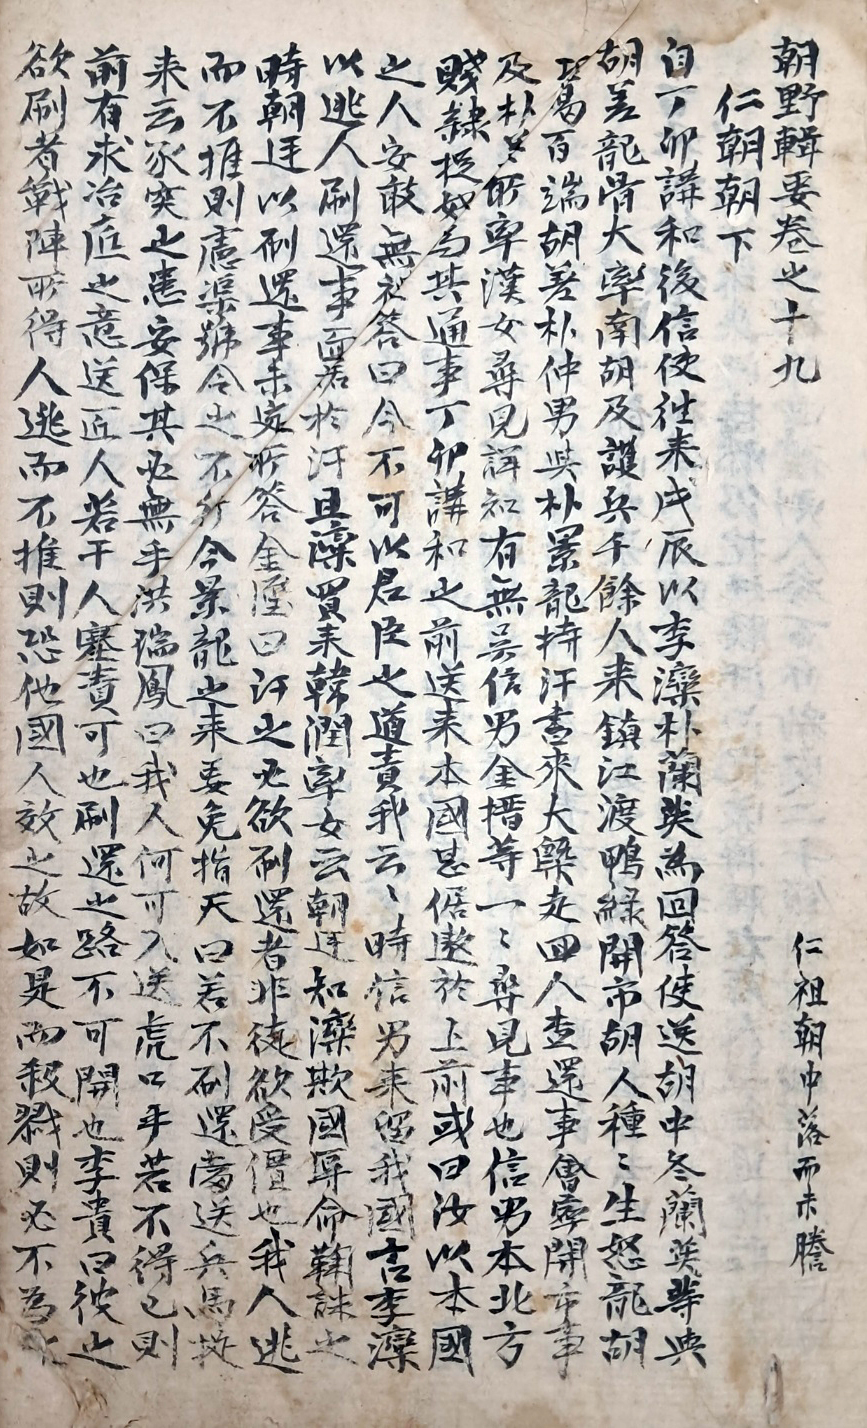 朝野輯要卷之十九
仁祖朝中落而未謄
仁朝朝下
自丁卯講和後信使往来戊辰以李灤朴蘭英為回答使送胡中冬蘭英等與
胡差龍骨大率南胡及護兵千餘人来鎮江渡鴨綠開市胡人種〻生怒龍胡
喝百端胡差朴仲男與朴景龍持汗書來大槩走回人查還事會寧開市事
及朴差所率漢女尋見詳知有無吳信男金搢等一〻尋見事也信男本北方
賤隸捉奴為其通事丁卯講和之前送来本國甚倨遨於上前或曰汝以本國
之人安敢無礼答曰今不可以君臣之道責我云〻時信男来留我國言李灤
以逃人刷還事面若於汗且灤買来韓潤率女云朝廷知灤欺國辱命鞠誅之
時朝廷以刷還事未定所答金瑬曰汗之必欲刷還者非徒欲受價也我人逃
而不推則慮渠號令之不行今景龍之来要免指天曰若不刷還當送兵馬捉
来云豕突之患安保其必無乎洪瑞鳳曰我人何可入送虎口乎若不得已則
前有求冶匠之意送匠人若干人塞責可也刷還之路不可開也李貴曰彼之
欲刷者戰陣所得人逃而不推則恐他國人效之故如是而殺戮則必不為